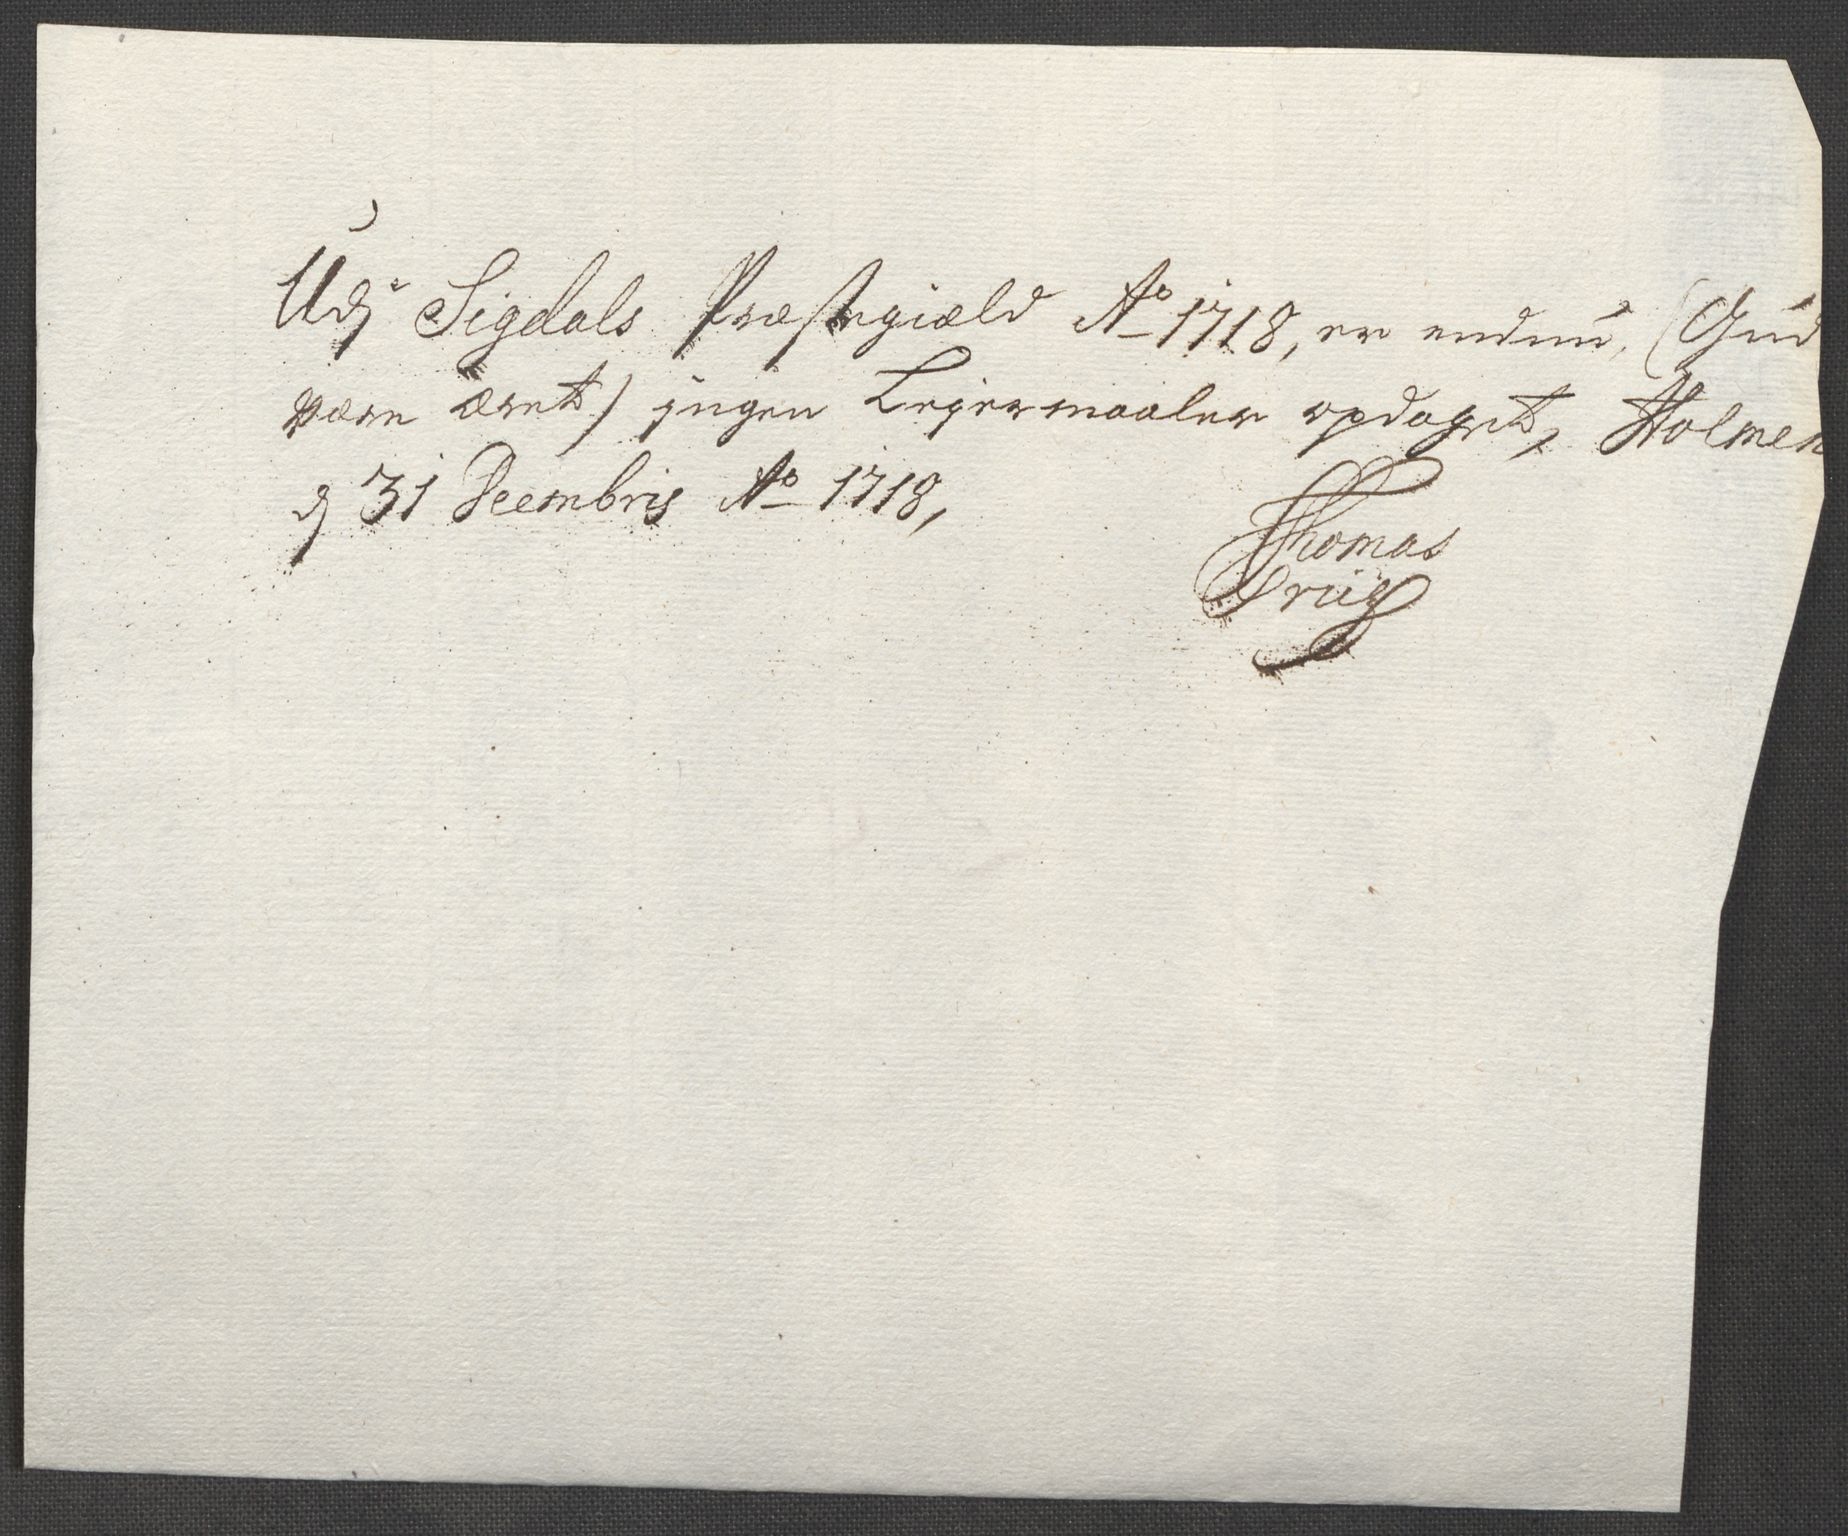 Udj Sigdals Præstegiæld Ao 1718, er endnu, (Gud
være æret) jngen Lejermaaler opdaget, Holmen
dj 31 Decembris Ao 1718,
Thomas